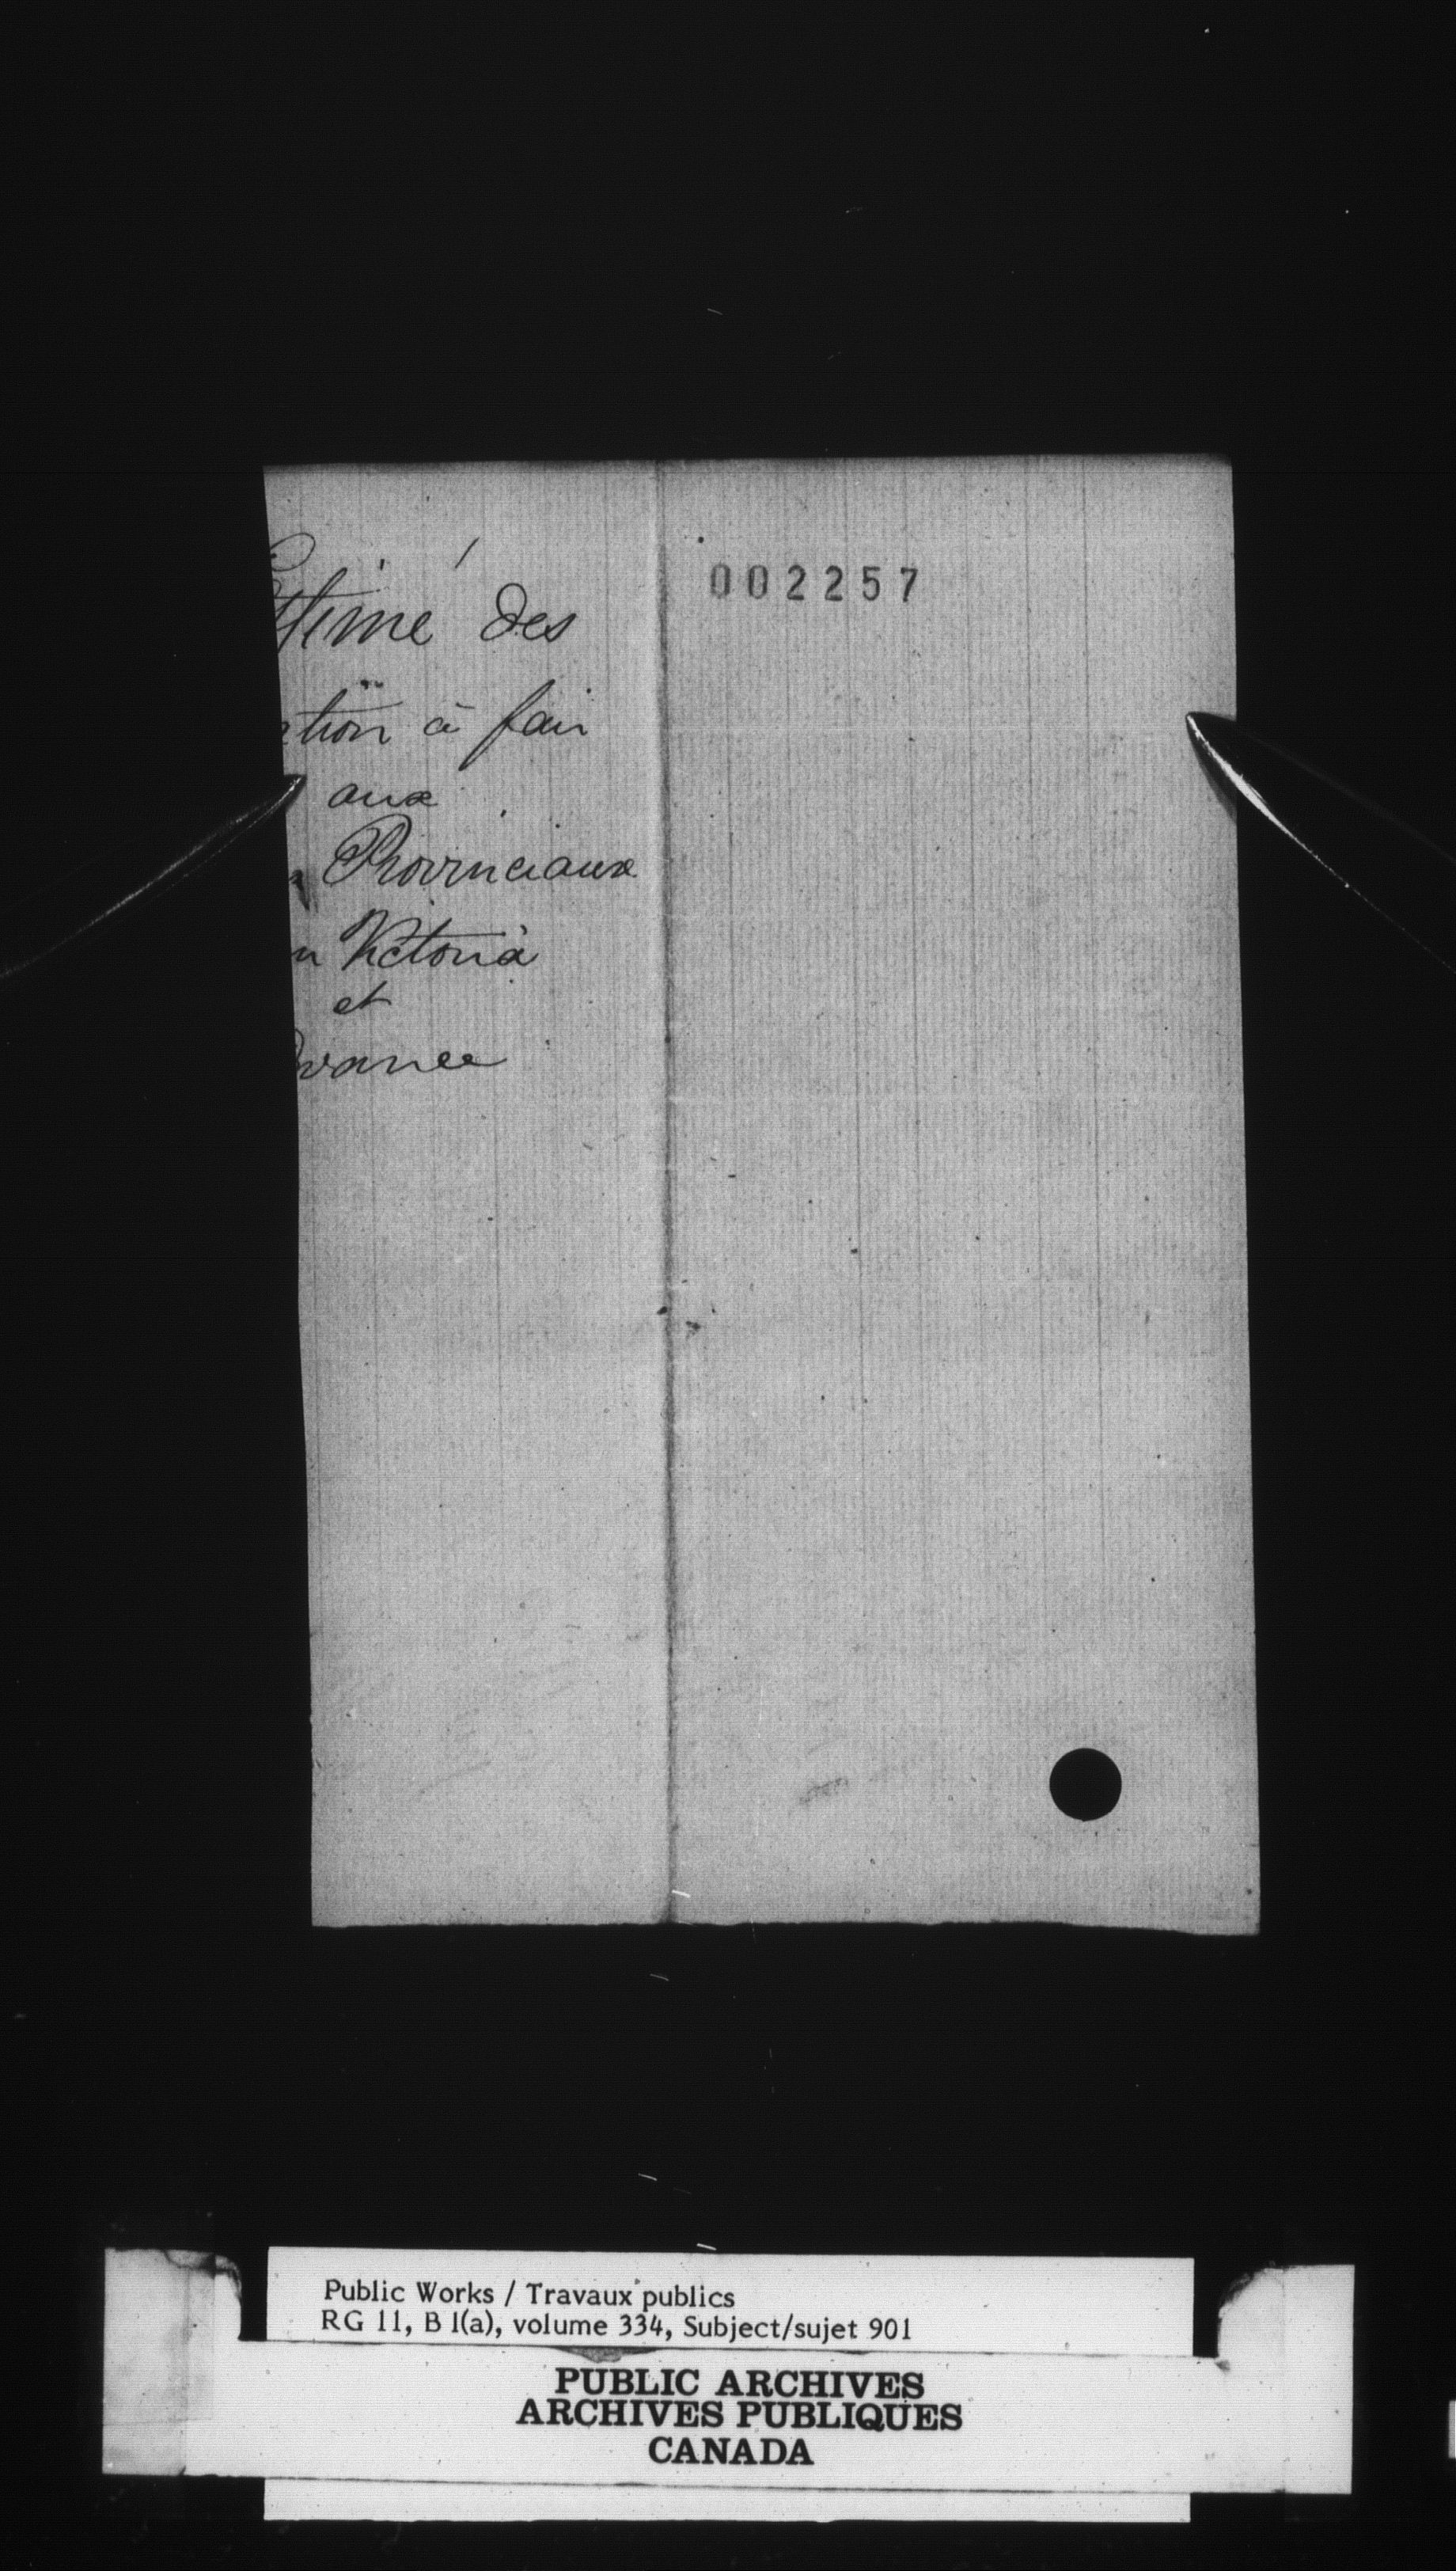 Estimé des
ation à fair
aux
Provinciaux
u Victoria
et
vance
002257
Public Works / Travaux publics
RG 11, B 1(a), volume 334, Subject/sujet 901
PUBLIC ARCHIVES
ARCHIVES PUBLIQUES
CANADA